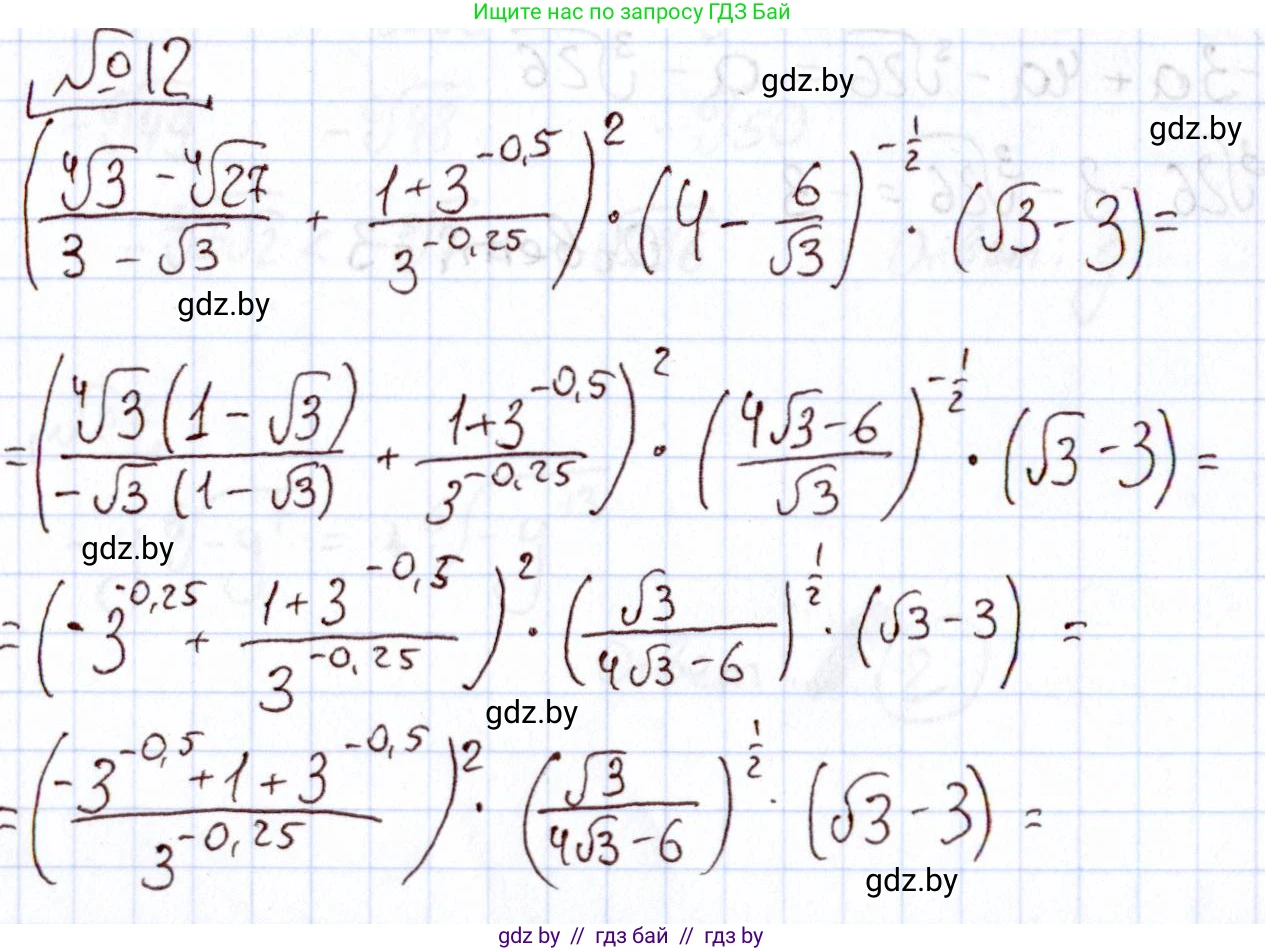 Ищите нас по запросу ГДЗ Бай
№12
gdz.by
gdz.by
(\frac{\sqrt[4]{3} - \sqrt[4]{27}}{3 - \sqrt{3}} + \frac{1+3^{-0,5}}{3^{-0,25}})^2 · (4 - \frac{6}{\sqrt{3}})^{-\frac{1}{2}} · (\sqrt{3} - 3) =
gdz.by
= (\frac{\sqrt[4]{3}(1 - \sqrt{3})}{-\sqrt{3}(1 - \sqrt{3})} + \frac{1+3^{-0,5}}{3^{-0,25}})^2 · (\frac{4\sqrt{3}-6}{\sqrt{3}})^{-\frac{1}{2}} · (\sqrt{3} - 3) =
gdz.by
= (-3^{-0,25} + \frac{1+3^{-0,5}}{3^{-0,25}})^2 · (\frac{\sqrt{3}}{4\sqrt{3}-6})^{\frac{1}{2}} · (\sqrt{3} - 3) =
gdz.by
= (\frac{-3^{-0,5}+1+3^{-0,5}}{3^{-0,25}})^2 · (\frac{\sqrt{3}}{4\sqrt{3}-6})^{\frac{1}{2}} · (\sqrt{3} - 3) =
gdz.by
gdz by // гдз бай // гдз by